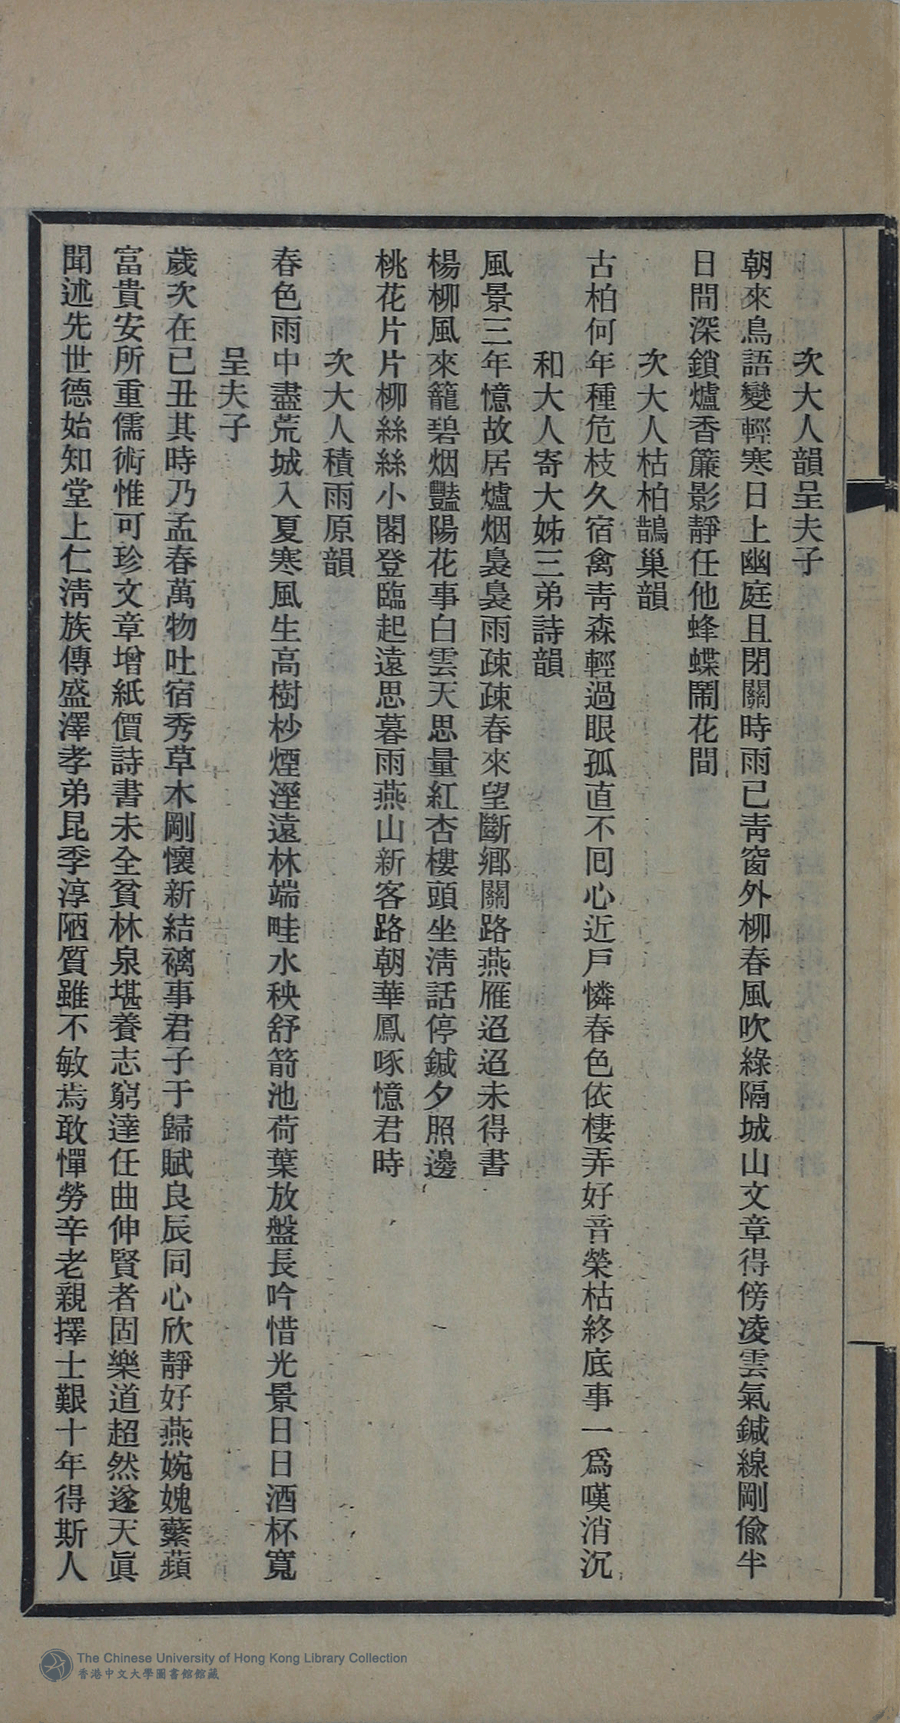 次大人韻呈夫子
朝來鳥語變輕寒日上幽庭且閉關時雨已青窗外柳春風吹綠隔城山文章得傍凌雲氣鍼線剛偸半
日間深鎖爐香簾影靜任他蜂蝶鬧花間
次大人枯柏鵲巢韻
古柏何年種危枝久宿禽青森輕過眼孤直不囘心近戶憐春色依棲弄好音榮枯終底事一爲嘆消沉
和大人寄大姊三弟詩韻
風景三年憶故居爐烟裊裊雨疎疎春來望斷鄉關路燕雁迢迢未得書
楊柳風來籠碧烟豔陽花事白雲天思量紅杏樓頭坐淸話停鍼夕照邊
桃花片片柳絲絲小閣登臨起遠思暮雨燕山新客路朝華鳳啄憶君時
次大人積雨原韻
春色雨中盡荒城入夏寒風生高樹杪煙溼遠林端畦水秧舒箭池荷葉放盤長吟惜光景日日酒杯寬
呈夫子
歲次在已丑其時乃孟春萬物吐宿秀草木剛懷新結褵事君子于歸賦良辰同心欣靜好燕婉媿蘩蘋
富貴安所重儒術惟可珍文章增紙價詩書未全貧林泉堪養志窮達任曲伸賢者固樂道超然遂天眞
聞述先世德始知堂上仁淸族傳盛澤孝弟昆季淳陋質雖不敏焉敢憚勞辛老親擇士艱十年得斯人
The Chinese University of Hong Kong Library Collection
香港中文大學圖書館館藏